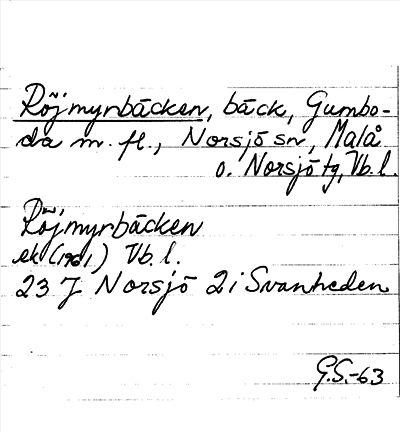 Röjmyrbäcken, bäck, Gumbo-
da m. fl., Norsjö sn, Malå
o. Norsjö tg, Vb. l.
Röjmyrbäcken
ek (1961) Vb. l.
23 J Norsjö 2 i Svanheden
G.S.-63